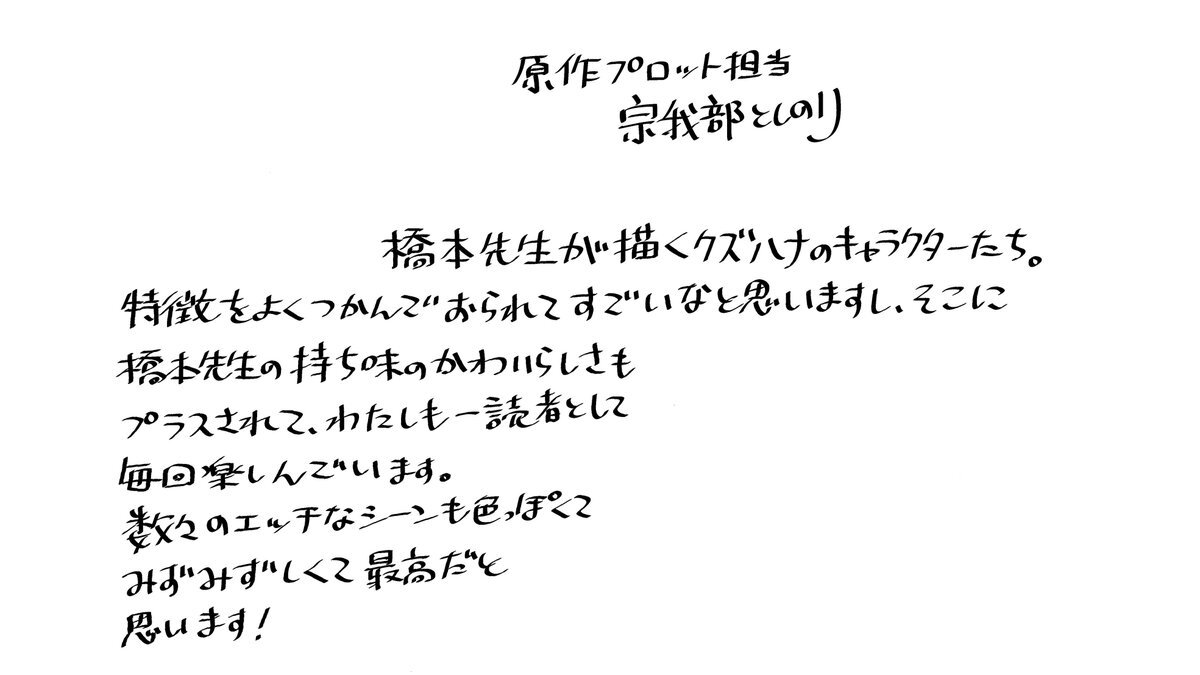 原作プロット担当
宗我部としのり
橋本先生が描くクズハナのキャラクターたち。
特徴をよくつかんでおられてすごいなと思いますし、そこに
橋本先生の持ち味のかわいらしさも
プラスされて、わたしも一読者として
毎回楽しんでいます。
数々のエッチなシーンも色っぽくて
みずみずしくて最高だと
思います!